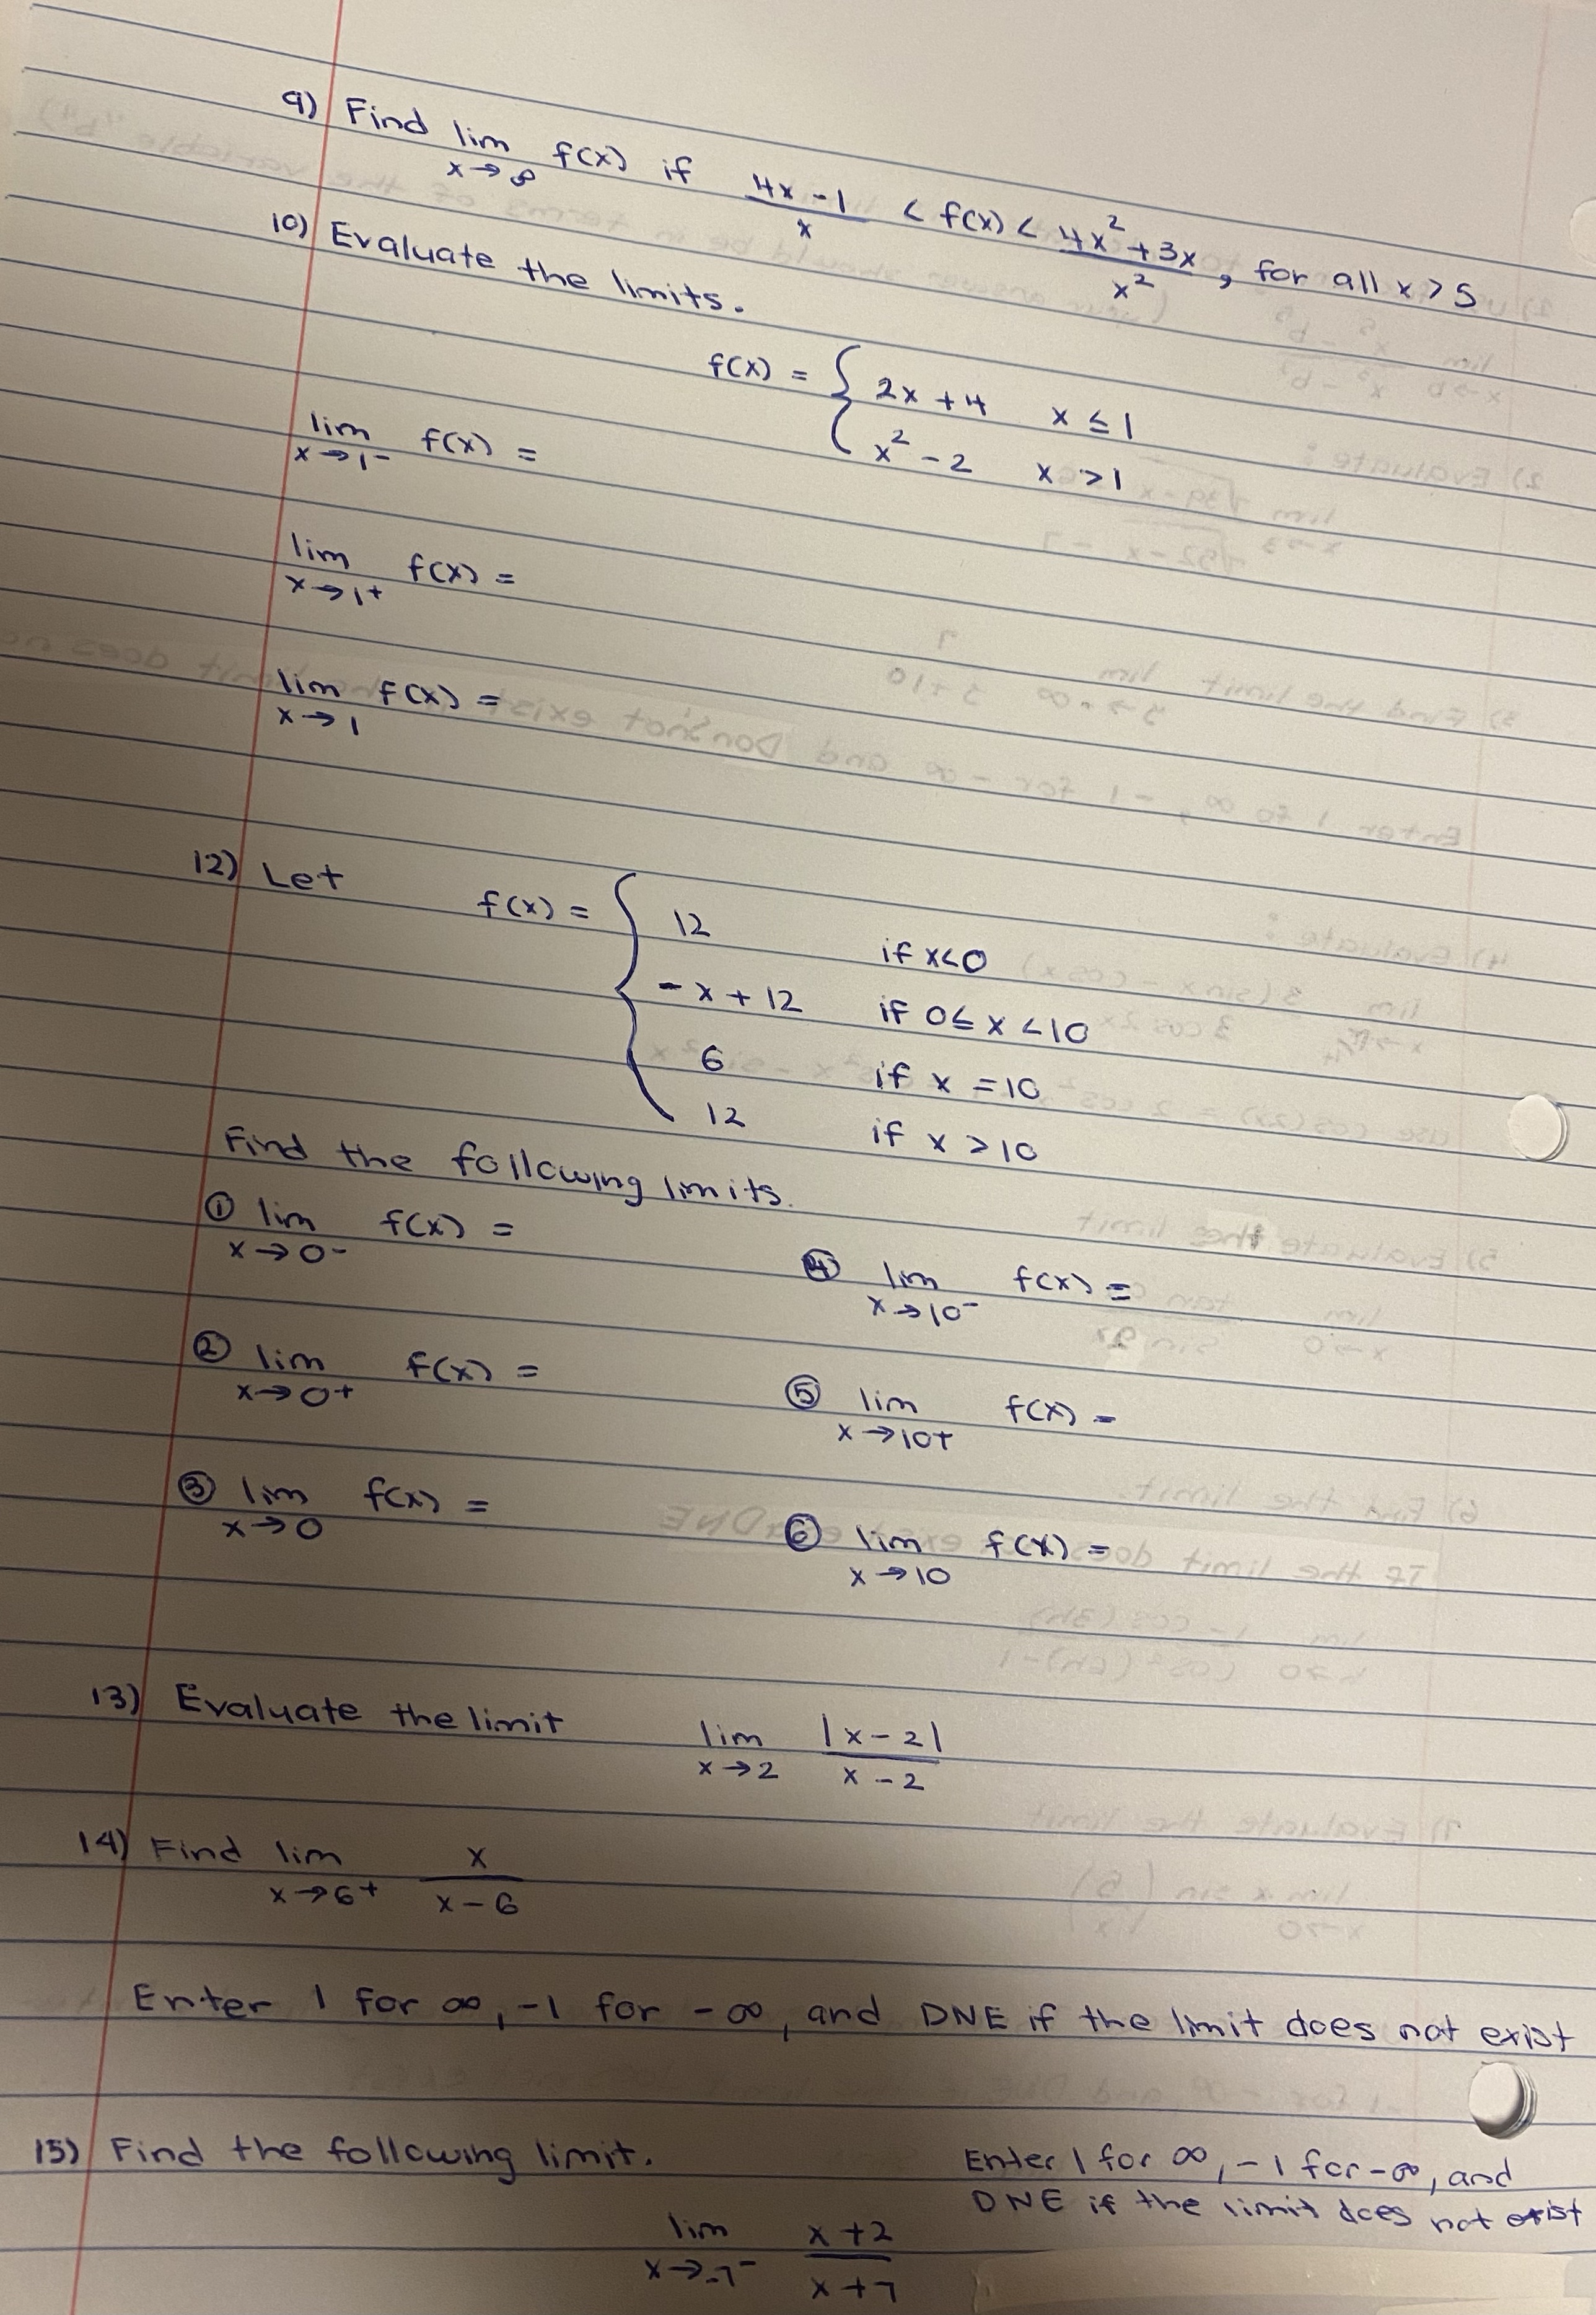 9) Find lim x→∞ f(x) if (4x-1)/x < f(x) < (4x²+3x)/x², for all x>5
10) Evaluate the limits.
f(x) = { 2x+4 x≤1
x²-2 x>1
lim x→1⁻ f(x) =
lim x→1⁺ f(x) =
lim x→1 f(x) =
12) Let f(x) = { 12 if x<0
-x+12 if 0≤x<10
6 if x=10
12 if x>10
Find the following limits.
① lim x→0⁻ f(x) =
④ lim x→10⁻ f(x) =
② lim x→0⁺ f(x) =
⑤ lim x→10⁺ f(x) =
③ lim x→0 f(x) =
⑥ lim x→10 f(x) =
13) Evaluate the limit lim x→2 |x-2|/(x-2)
14) Find lim x→6⁺ x/(x-6)
Enter 1 for ∞, -1 for -∞, and DNE if the limit does not exist
15) Find the following limit.
Enter 1 for ∞, -1 for -∞, and
DNE if the limit does not exist
lim x→-7⁻ (x+2)/(x+7)